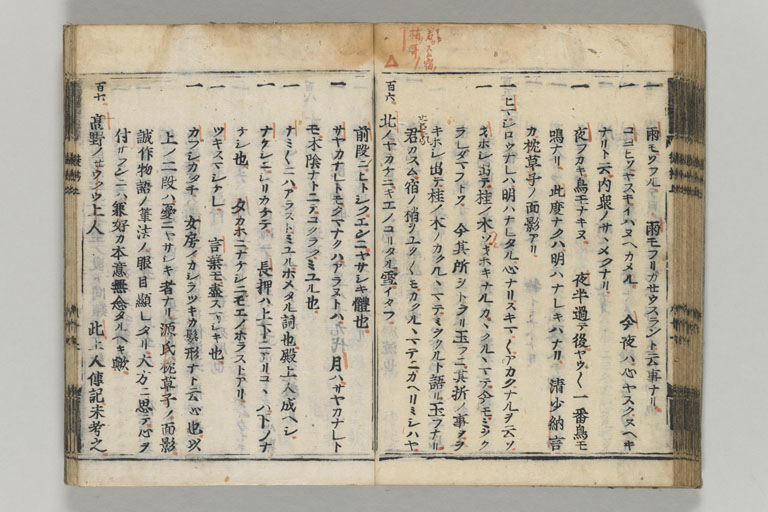 一 雨モヨフル、 雨モフリカサウスラント云事ナリ
一 コヨヒソヤスキイハヌヘカメル 今夜ハ心ヤスクスヘキ
ナリト云内衆ノサヽメクナリ
一 夜フカキ鳥モナキヌ 夜半過テ後ヤウ〱一番鳥モ
鳴ナリ 此度ナクハ明ハナレキハナリ 清少納言
カ枕草子ノ面影アリ
一 ヒマシロクナレハ明ハナレタル心ナリスキマノアカクナルヲ云ソ
一 出テ桂ノ木 オホキナルカカクルヽマテ今モミヲク
ラレタマフトソ 今其所ヲトヲリ玉フニ其折ノ事ヲヲ
出テ桂ノ木ノカクルヽマテミヲクルト語リ玉フナリ
君カスム宿ノ梢ヲユク〱モカクルヽマテニカヘリミシハヤ
百六、 北ノヤカケニキエノコリタル雪イタフ
前段ニヒトシクエンニヤサシキ體也
一 サヤカナレトモクマナクハアラヌトハ 月ハサヤカナレト
モ木陰ナトニテコクラクミユル也
一 ナミ〱ニハアラストミユルホメタル詞也殿上人成ヘシ
一 ナケシニシリカケテ 長押ハ上下ニアリコヽハ下ノナ
ケシ也 夕カホニナケシニモエノホラストアリ
一 ツキスマシケレ 言葉モ盡スマシキ也
一 カブシカタチ 女房ノカシラツキカ髪形ナト云心也以
上ノ二段ハ ニヤサシキ者ナリ源氏枕草子ノ面影
誠作物語ノ筆法ノ眼目顯レタリ大方ニ思テ心ヲ
付サランニハ兼好カ本意無念タルヘキ歟
百七、 髙野ノセウクウ上人 此上人傳記未考之